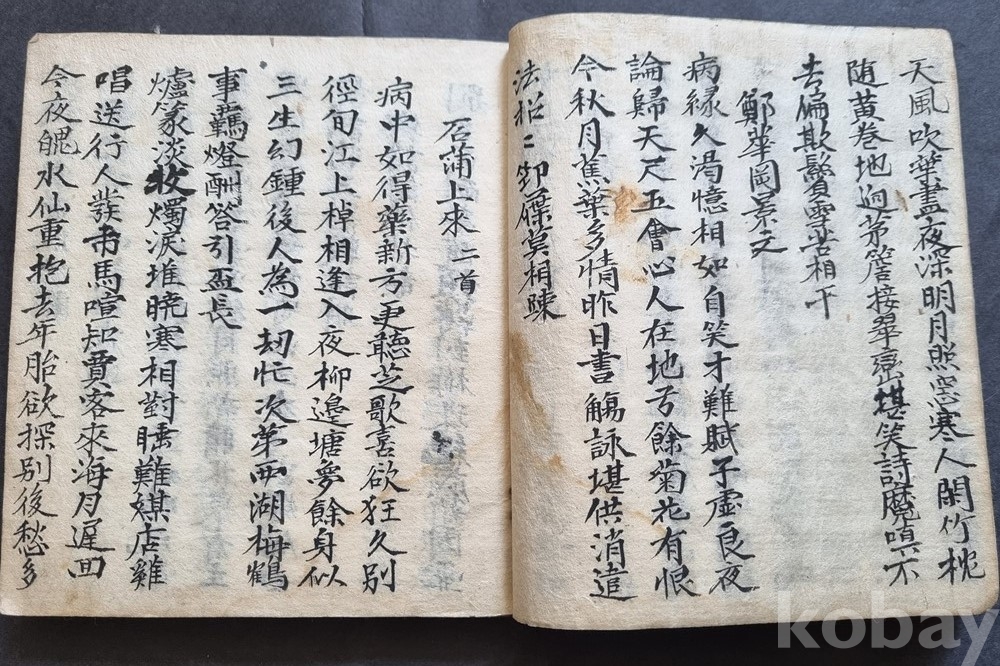 天風吹華盡夜深明月照窓寒人閑竹枕
随黄卷地迥茅簷接翠巒堪笑詩魔嗔不
去偏欺鬂雪苦相干
鄭華岡景之
病緣久渴憶相如自笑才難賦子虛良夜
論歸天尺五會心人在地弓餘菊花有恨
今秋月蕉葉多情昨日書觴詠堪供消遣
法招〻屧莫相踈
石蒲上來 二首
病中如得藥新方更聽芝歌喜欲狂久別
徑旬江上棹相逢入夜柳邊塘夢餘身似
三生幻鍾後人為一刼忙次第西湖梅鶴
事羈燈酬答引盃長
爐篆淡牧燭淚堆曉寒相對睡難媒店雞
唱送行人發市馬喧知賣客來海月遲回
今夜魄水仙重抱去年胎欲探別後愁多
kobay